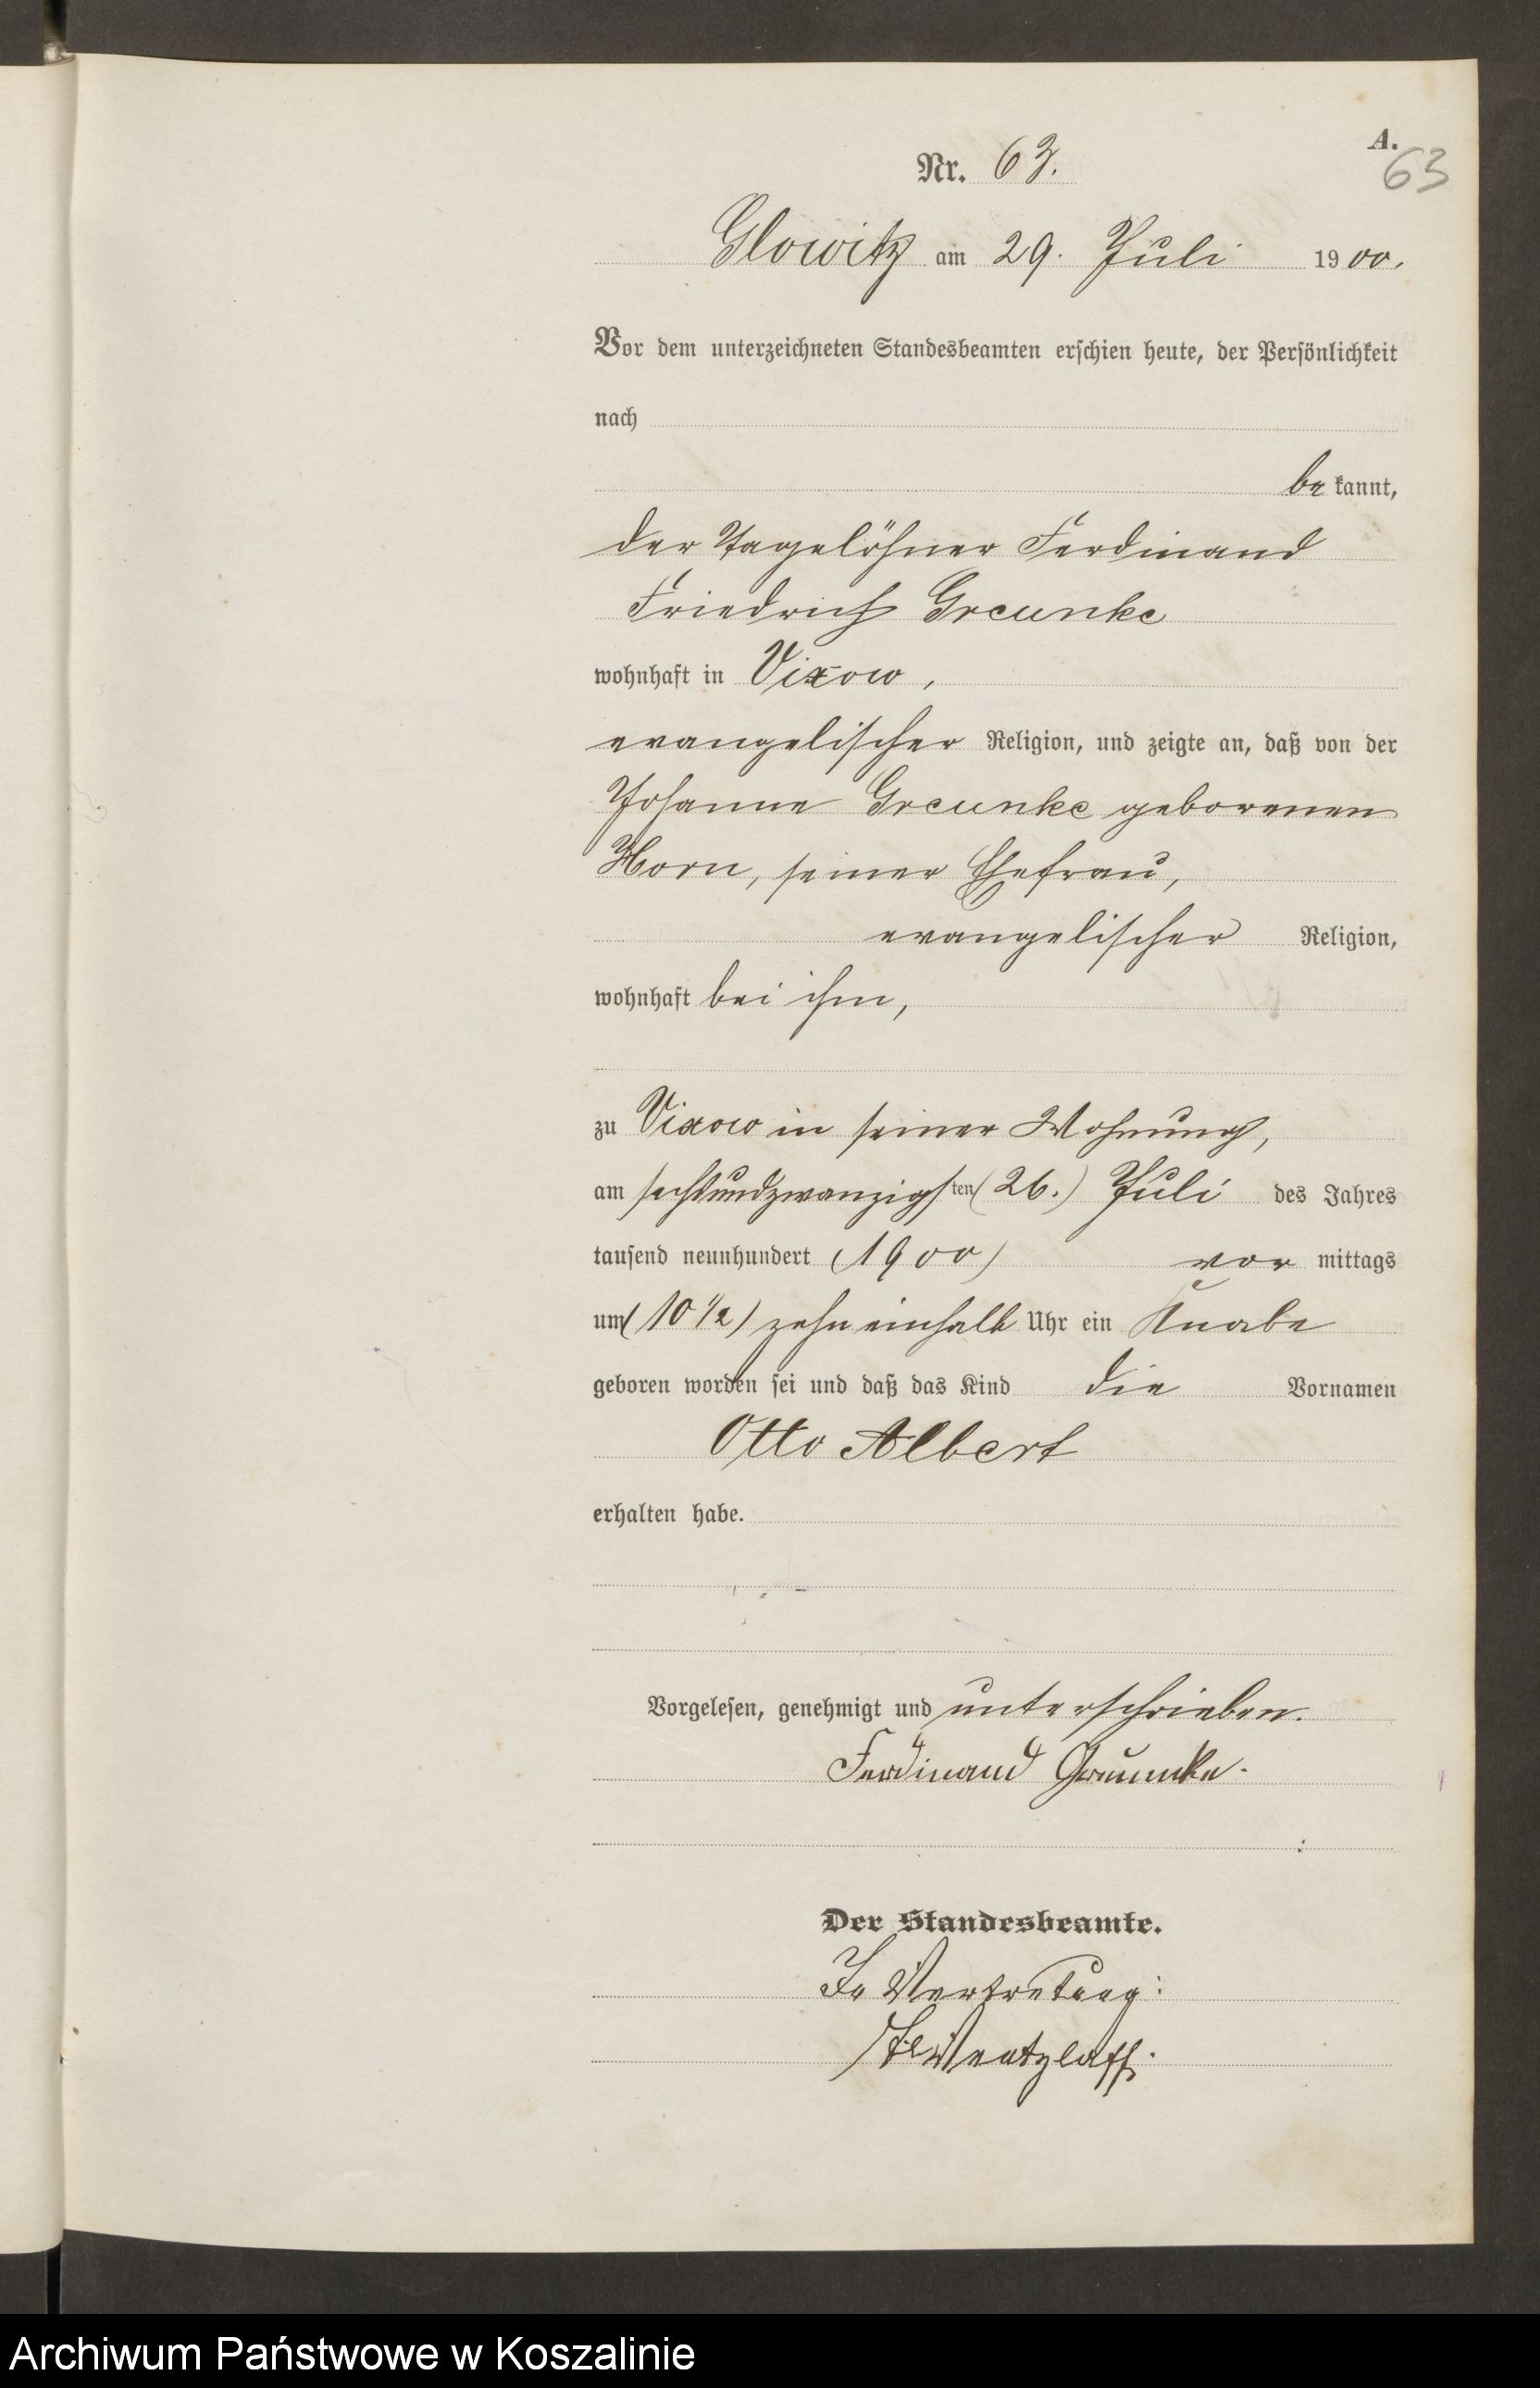 A.
Nr. 63.
63
Glowitz am 29. Juli 1900.
Vor dem unterzeichneten Standesbeamten erschien heute, der Persönlichkeit
nach
bekannt,
der Tagelöhner Ferdinand
Friedrich Greunke
wohnhaft in Vixow,
evangelischer Religion, und zeigte an, daß von der
Johanne Greunke geborenen
Horn, seiner Ehefrau,
evangelischer Religion,
wohnhaft bei ihm,
zu Vixow in seiner Wohnung,
am sechsundzwanzigsten (26.) Juli des Jahres
tausend neunhundert (1900) vor mittags
um (10 1/2) zehn einhalb Uhr ein Knabe
geboren worden sei und daß das Kind die Vornamen
Otto Albert
erhalten habe.
Vorgelesen, genehmigt und unterschrieben.
Ferdinand Greunke.
Der Standesbeamte.
In Vertretung:
Wentzlaff.
Archiwum Państwowe w Koszalinie